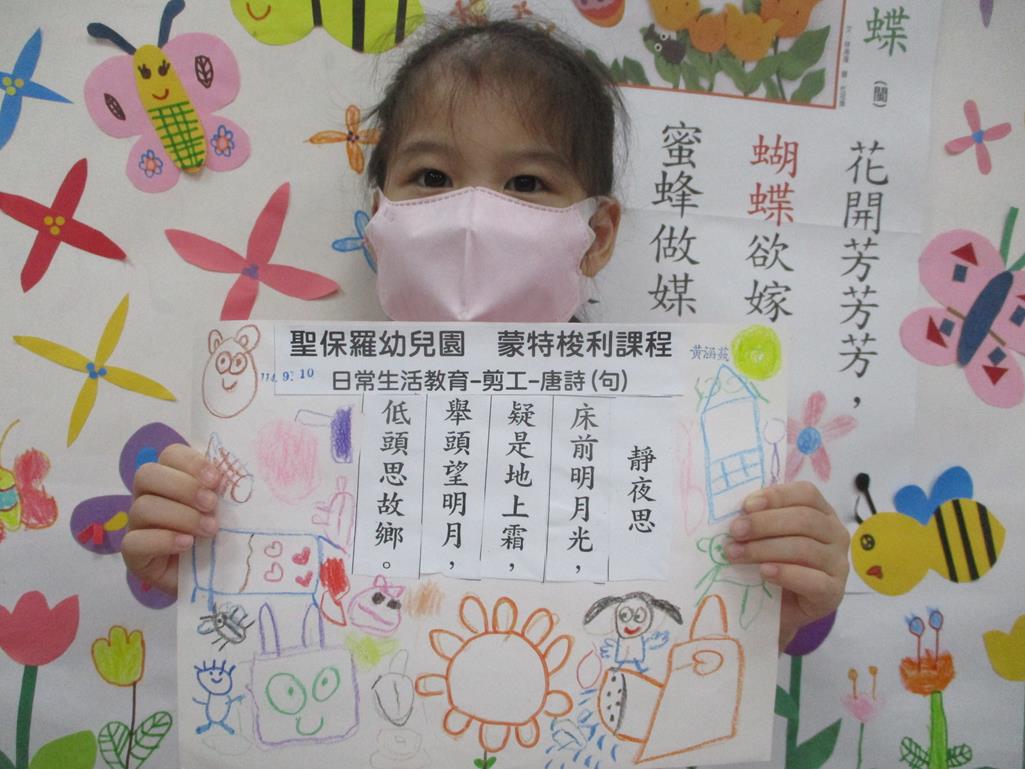 蝶
(闆)
花開芳芳芳，
蝴蝶欲嫁
蜜蜂做媒
聖保羅幼兒園　蒙特梭利課程
114. 9. 10
日常生活教育–剪工–唐詩(句)
靜夜思
床前明月光，
疑是地上霜，
舉頭望明月，
低頭思故鄉。